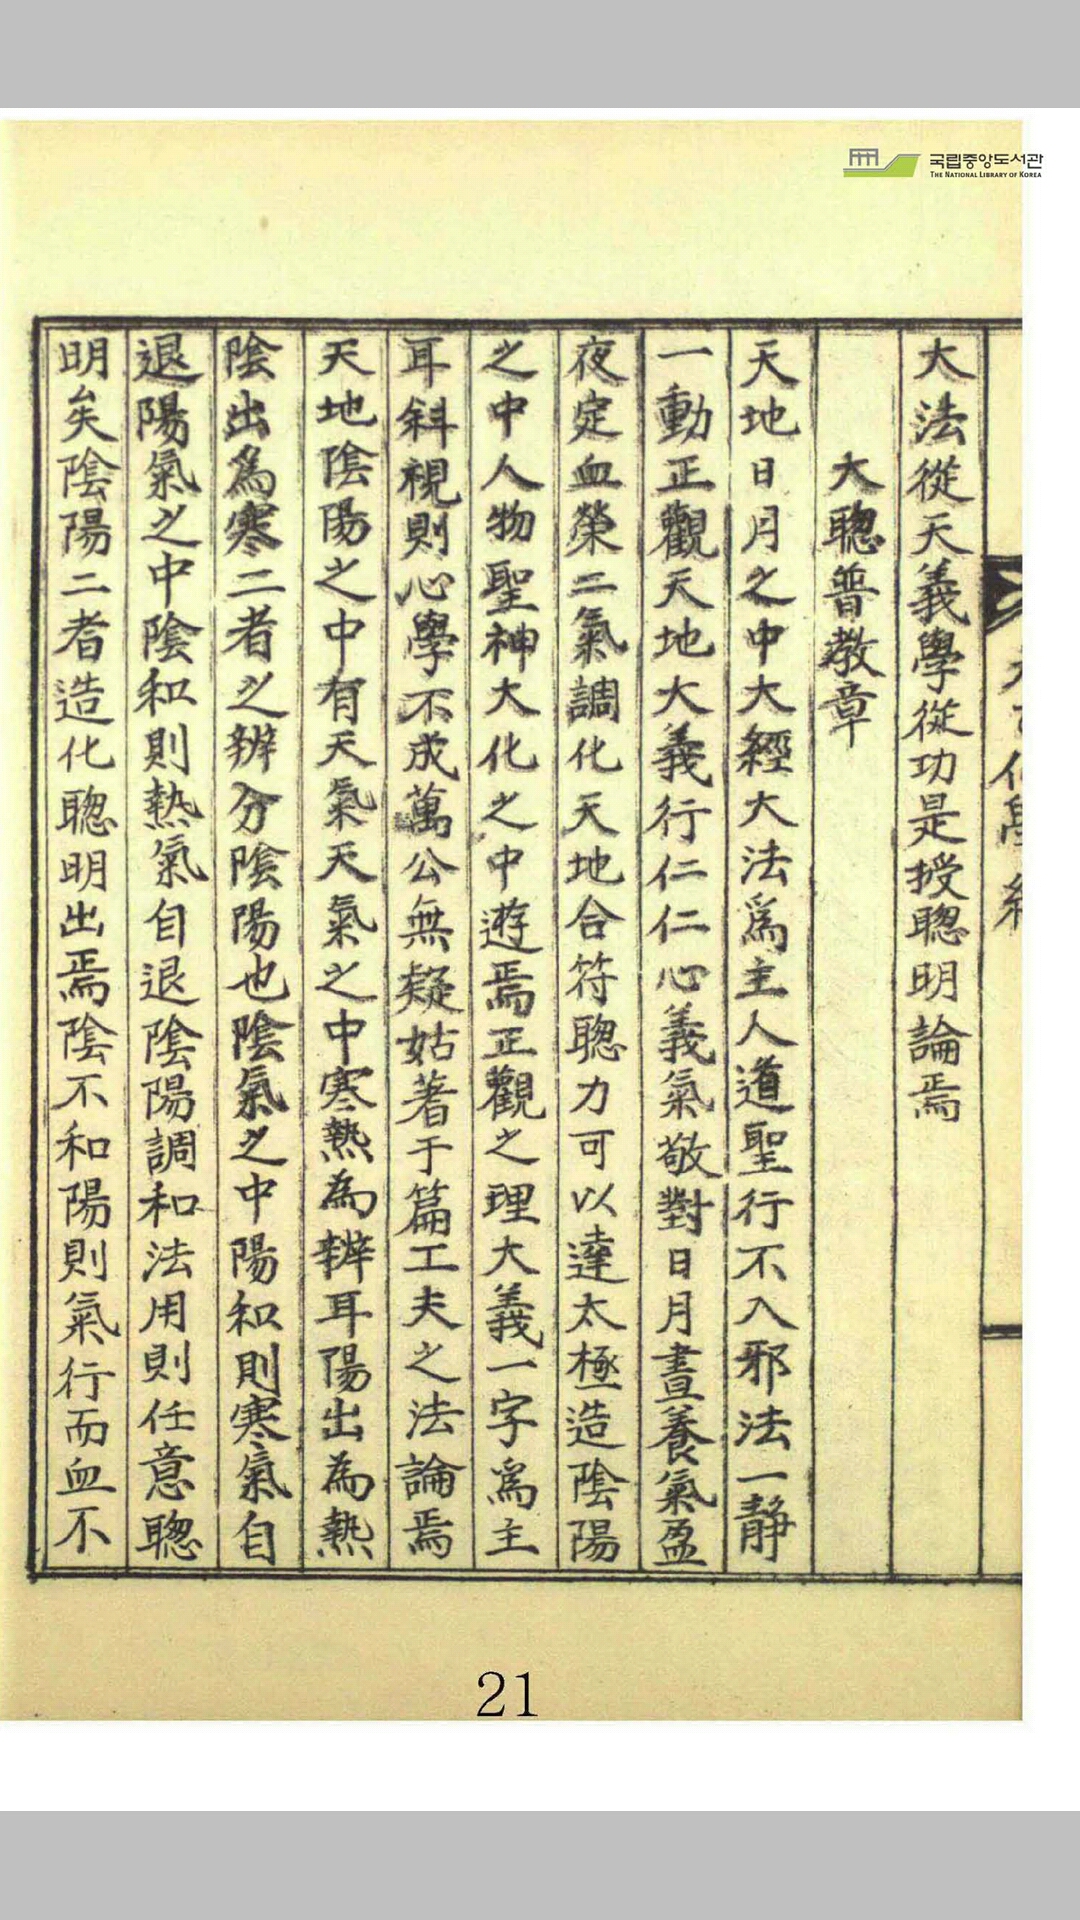 국립중앙도서관
THE NATIONAL LIBRARY OF KOREA
大法從天義學從功是授聰明論焉
大聰普教章
天地日月之中大經大法爲主人道聖行不入邪法一靜
一動正觀天地大義行仁仁心義氣敬對日月晝養氣盈
夜定血榮二氣調化天地合符聰力可以達太極造陰陽
之中人物聖神大化之中遊焉正觀之理大義一字爲主
耳斜視則心學不成萬公無疑姑著于篇工夫之法論焉
天地陰陽之中有天氣天氣之中寒熱為辨耳陽出為熱
陰出爲寒二者之辨分陰陽也陰氣之中陽和則寒氣自
退陽氣之中陰和則熱氣自退陰陽調和法用則任意聰
明矣陰陽二者造化聰明出焉陰不和陽則氣行而血不
21